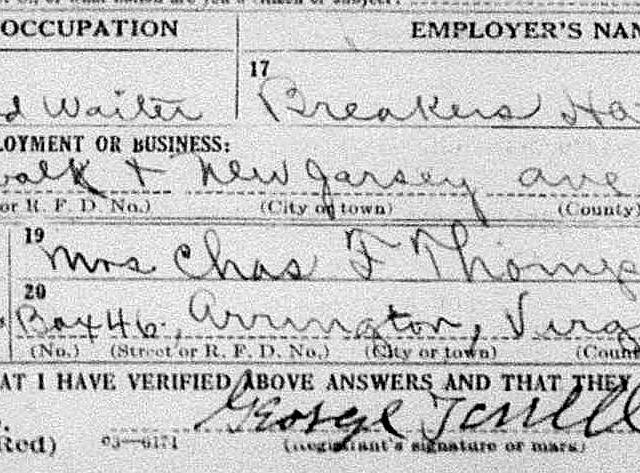 OCCUPATION EMPLOYER'S NAM
17
d Waiter Breakers Ho
LOYMENT OR BUSINESS:
walk + New Jersey ave
or R. F. D. No.) (City or town) (County)
19
Mrs Chas F Thomp
20
Box 46, Arrington, Virg
(No.) (Street or R. F. D. No.) (City or town) (Coun
AT I HAVE VERIFIED ABOVE ANSWERS AND THAT THEY
George Terrell
Red) 03—6171 (Registrant's signature or mark)